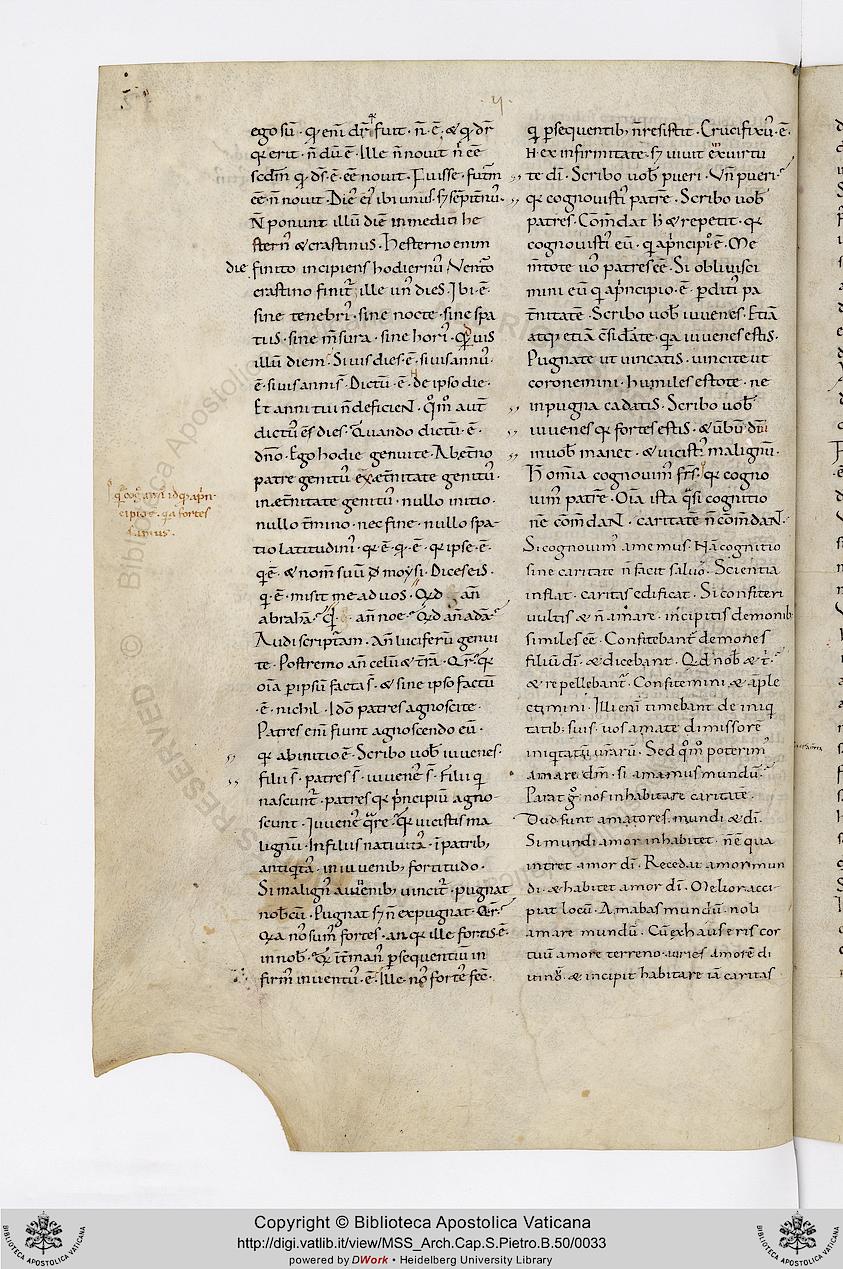 ego sū · qᵈ eni dr̄ fuit · n̄ · ē · & qᵈ dr̄
qᵈ erit · n̄ dū ē · Ille n̄ novit n̄ eē
sedm̄ qᵈ · ds̄ · ē · eē novit · Fuisse · futm̄
eē · n̄ novit · Dies ē ibi unus · s; sēpitn̄us ·
N̄ ponunt illū diē in medio he
stern̄ & crastinus · Hesterno enim
die finito incipiens hodiernus Vento
crastino finit̄ ille un̄ dies · Ibi · ē ·
sine tenebri · sine nocte · sine spa
tiis · sine m̄sura · sine hori · Qᵈ vis
illū diem · Si vis dies · ē · si vis annus ·
ē · si vis anni s̄ · Dictū · ē · de ipso die ·
Et anni tui n̄ deficieN · Qm̄ aut̄
dictus ē dies · Quando dictū · ē ·
dn̄o · Ego hodie genui te · Ab et̄no
patre genitus ex et̄nitate genitus ·
in et̄nitate genitus · nullo initio ·
nullo t̄mino · nec fine · nullo spa-
tio latitudini · qᵈ ē · q · ē · qᵈ ipse · ē ·
qᵈ ē · & nom̄ suū d̄ moysi · Dices eis ·
q · ē · misit me ad vos · Qᵈ an̄
abrahā · Qᵈ an̄ noe · Qᵈ an̄ adā ·
Audi scripturam · An̄ luciferū genui
te · Postremo an̄ celū & t̄rā · Qr̄ · qᵈ
oīa p ipsū facta s̄ · & sine ipso factū
· ē · nichil · Ido patres agnoscite ·
Patres eni fiunt agnoscendo eū ·
qᵈ ab initio ē · Scribo vob̄ iuvenes ·
filii s̄ · patres s̄ · iuvenes s̄ · Filii q
nascunt̄ · patres qᵈ p̄ncipiū agno-
scunt · Iuvenes quare · Qᵈ vicistis ma
lignū · In filiis nativitas · ī patrib;
antiquitas · in iuvenib; fortitudo ·
Si malign̄ a iuvenib; vincit̄ · pugnat
nob̄cū · Pugnat s; n̄ expugnat · Qr̄ ·
Qa nos sum̄ fortes · an qᵈ ille fortis · ē ·
in nob̄ · Qᵈ int̄ man̄ p̄sequentiū in
firm̄ inventus · ē · Ille nos fortes fec̄ ·
qi p̄sequentib; n̄ resistit · Crucifixus · ē ·
N ex infirmitate · s; vivit ex virtu
te dī · Scribo vob̄ pueri · Vn̄ pueri ·
qᵈ cognovistis patrē · Scribo vob̄
patres · Com̄dat h̄ & repetit · qᵈ
cognovistis eū · q a p̄ncipio ē · Me
m̄tote vos patres eē · Si oblivisci
mini eū q a p̄ncipio · ē · p̄diti pa
t̄nitatē · Scribo vob̄ iuvenes · Etiā
atq; etiā c̄siderate · qa iuvenes estis ·
Pugnate ut vincatis · vincite ut
coronemini · humiles estote · ne
in pugna cadatis · Scribo vob̄
iuvenes qᵈ fortes estis · & v̄bū · dī
in vob̄ manet · & vicistis malignū ·
H̄ omīa cognovim̄ frs̄ · qᵈ cogno
vim̄ patrē · Oīa ista qᵃsi cognitio
nē com̄daN · caritatē n̄ com̄daN ·
Si cognovim̄ · amemus · Nā cognitio
sine caritate n̄ facit salvos · Scientia
inflat · caritas edificat · Si confiteri
vultis & n̄ amare · incipitis demonib;
similes eē · Confitebant̄ demones
filiū dī · & dicebant · Qᵈ nob̄ & t̄ ·
& repellebant̄ · Confitemini · & aple
ctimini · Illi enī timebant de iniq
tatib; suis · vos amate dimissorē
iniquitatū vr̄arū · Sed qm̄ poterim̄
amare · dm̄ · si amamus mundū ·
Parat g nos inhabitare caritatē ·
Duo sunt amores · mundi & dī ·
Si mundi amor inhabitet · n̄ ē qua
intret amor dī · Recedat amor mun
di · & habitet amor dī · Melior acci
piat locū · Amabas mundū · noli
amare mundū · Cū exhauseris cor
tuū amore terreno · auries amorē di
vinū · & incipit habitare iā caritas
Copyright © Biblioteca Apostolica Vaticana
http://digi.vatlib.it/view/MSS_Arch.Cap.S.Pietro.B.50/0033
powered by DWork • Heidelberg University Library